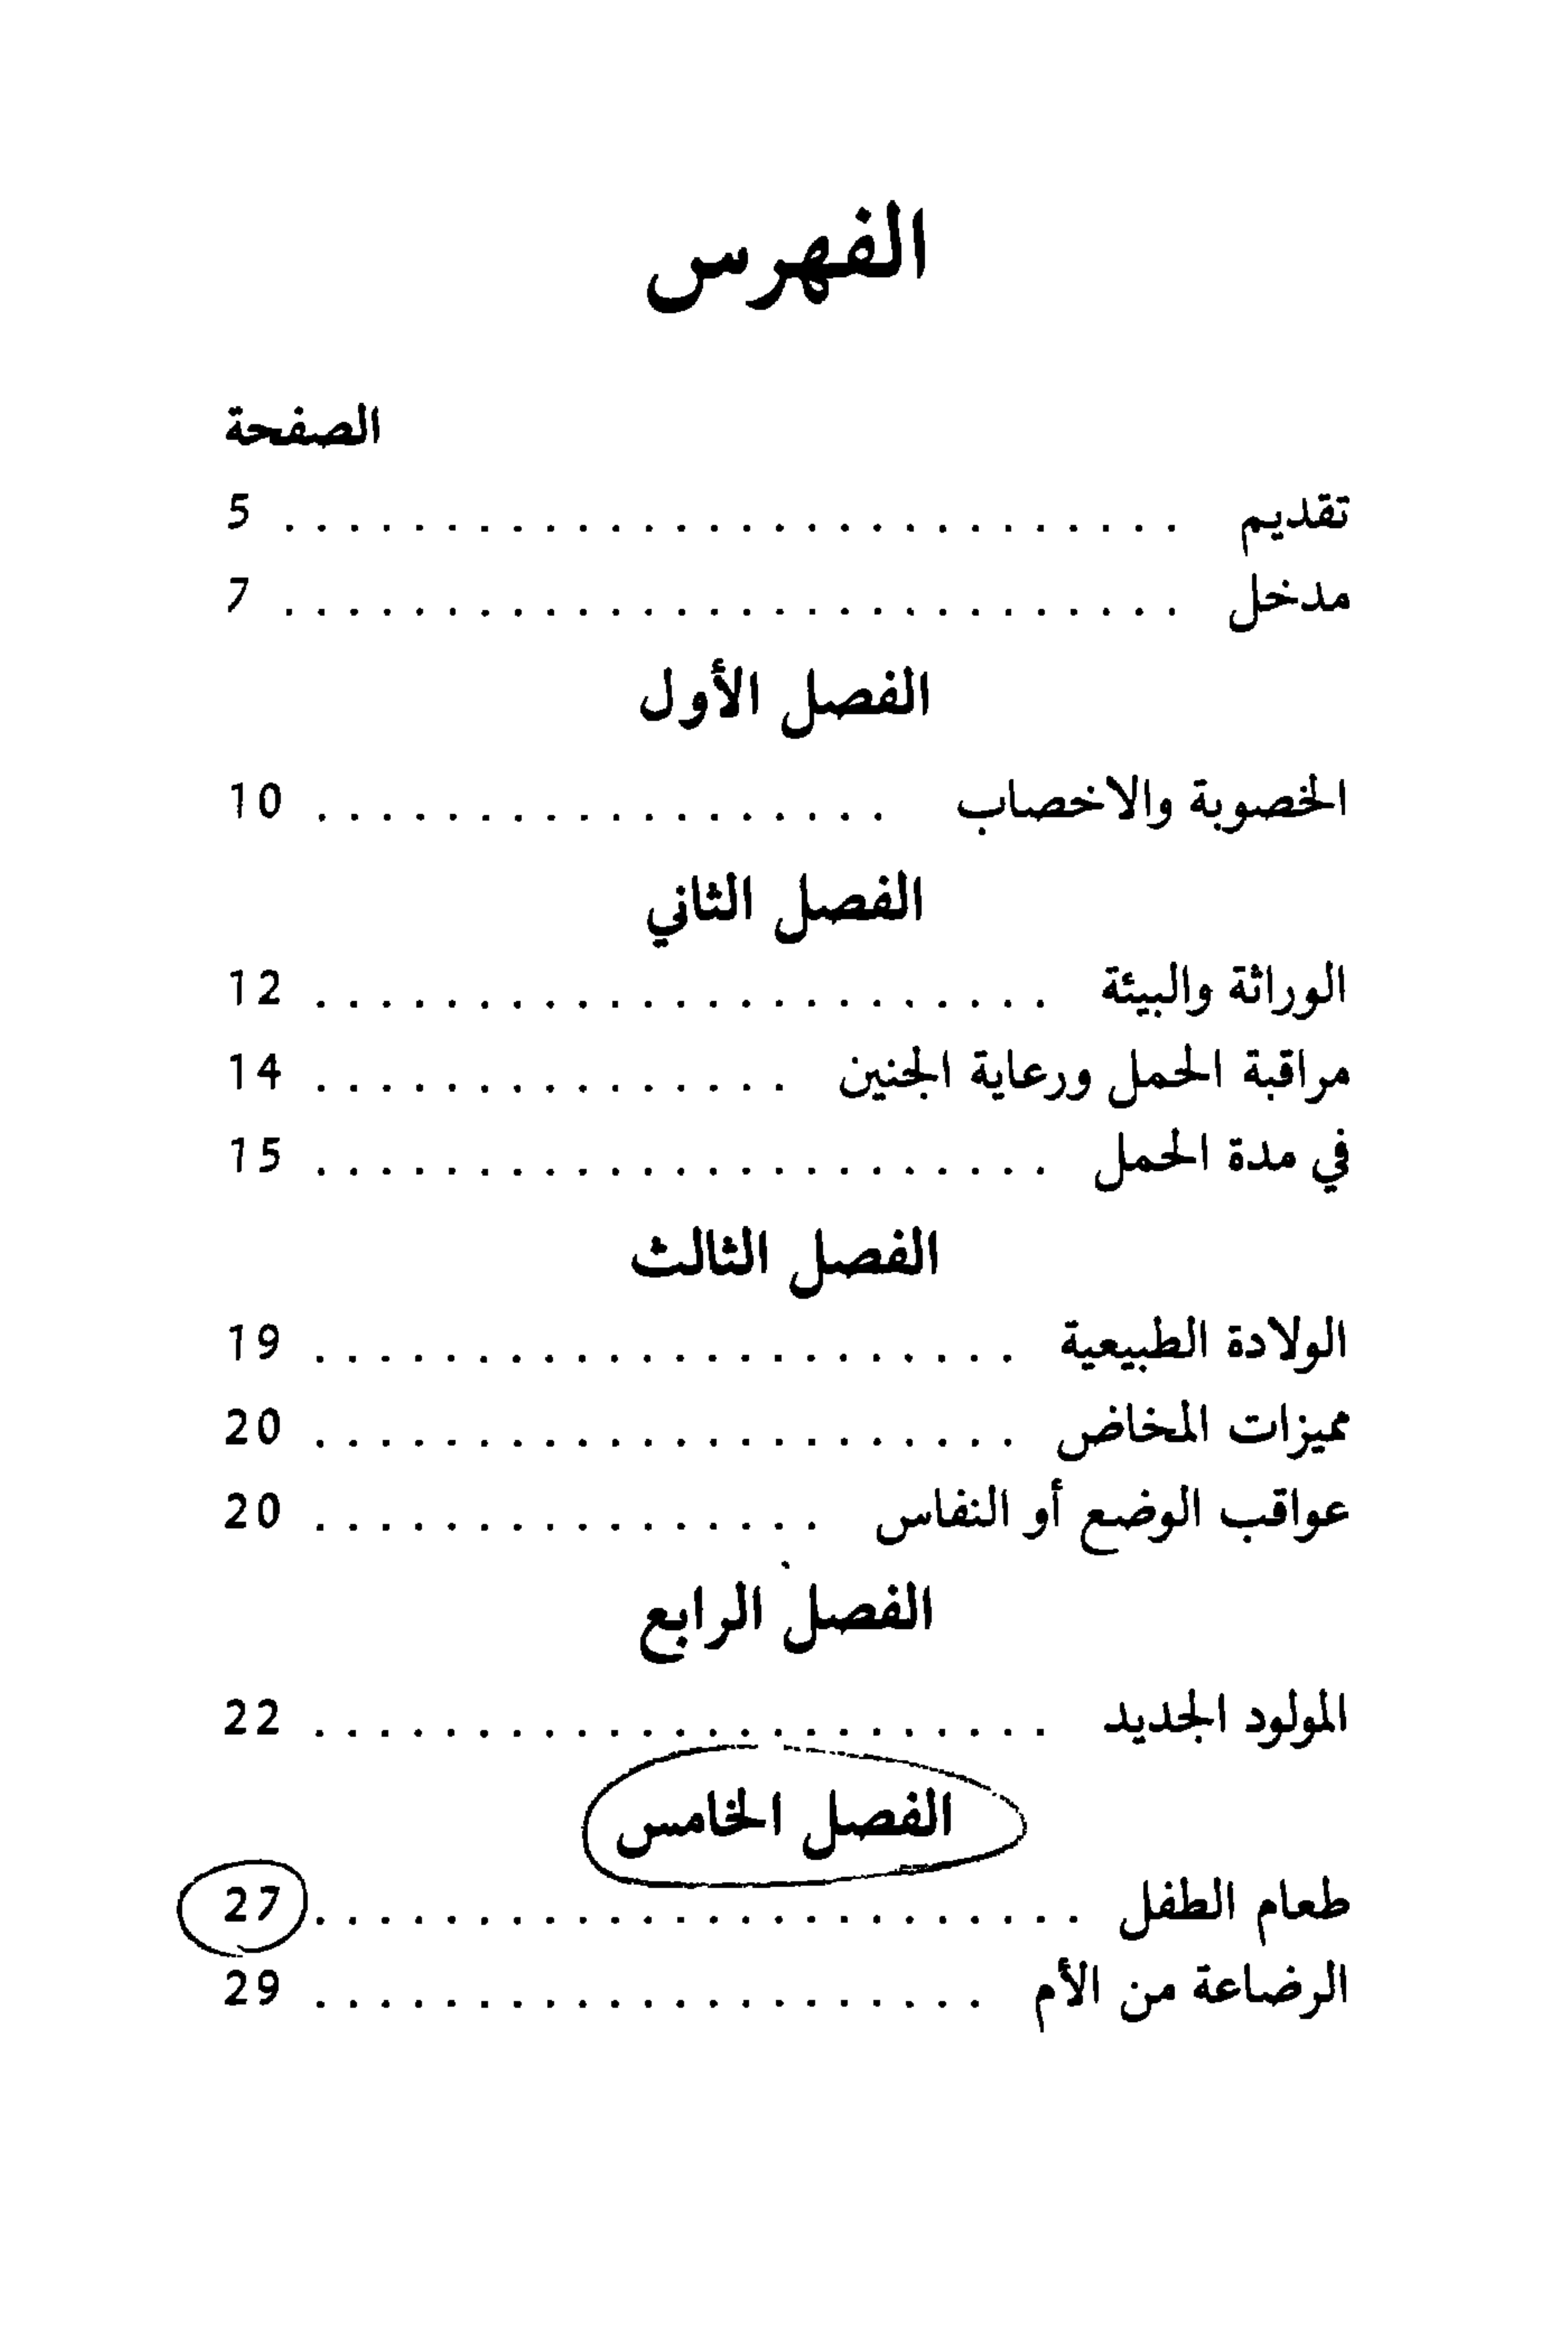 الفهرس
الصفحة
تقديم . . . . . . . . . . . . . . . . . . . . . . . . . . . . 5
مدخل . . . . . . . . . . . . . . . . . . . . . . . . . . . . 7
الفصل الأول
الخصوبة والاخصاب . . . . . . . . . . . . . . . . . . 10
الفصل الثاني
الوراثة والبيئة . . . . . . . . . . . . . . . . . . . . . . . 12
مراقبة الحمل ورعاية الجنين . . . . . . . . . . . . . . . 14
في مدة الحمل . . . . . . . . . . . . . . . . . . . . . . . 15
الفصل الثالث
الولادة الطبيعية . . . . . . . . . . . . . . . . . . . . . . 19
مميزات المخاض . . . . . . . . . . . . . . . . . . . . . . 20
عواقب الوضع أو النفاس . . . . . . . . . . . . . . . . 20
الفصل الرابع
المولود الجديد . . . . . . . . . . . . . . . . . . . . . . . 22
الفصل الخامس
طعام الطفل . . . . . . . . . . . . . . . . . . . . . . . . 27
الرضاعة من الأم . . . . . . . . . . . . . . . . . . . . . 29